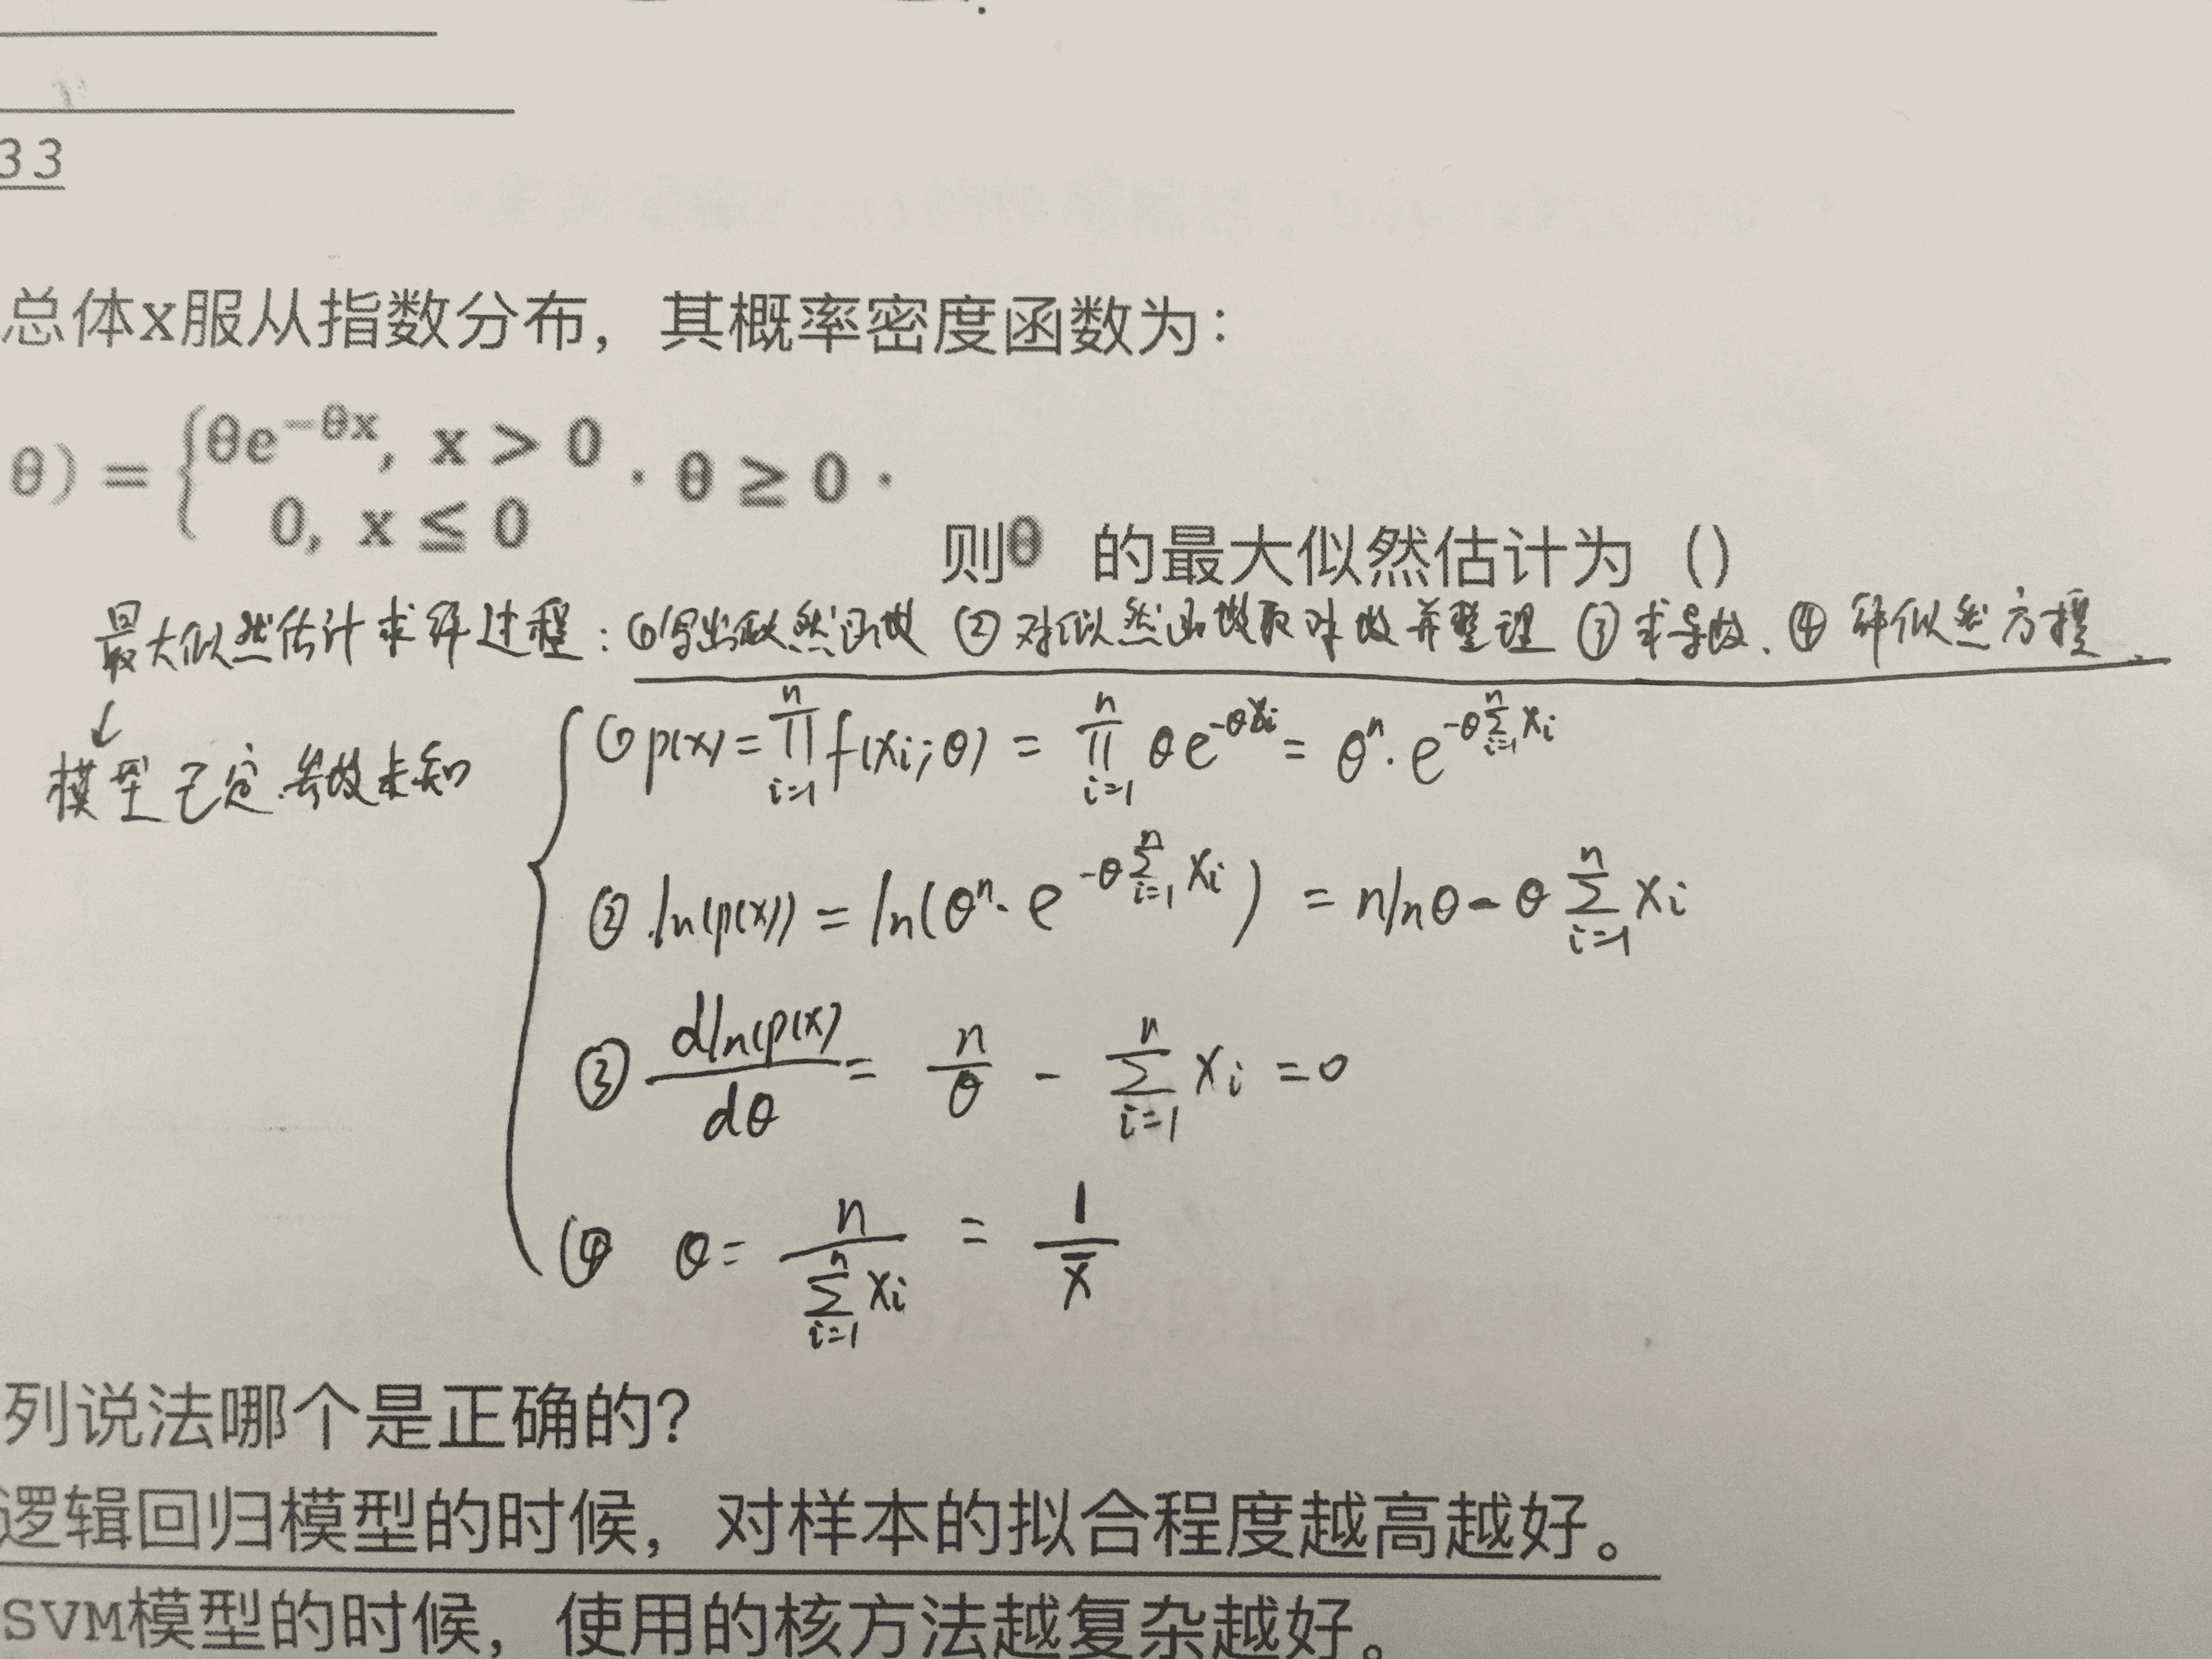 33
总体x服从指数分布，其概率密度函数为：
θ) = { θe^{-θx}, x > 0
0, x ≤ 0 · θ ≥ 0 ·
则θ 的最大似然估计为 ()
最大似然估计求解过程：①写出似然函数 ②对似然函数取对数并整理 ③求导数. ④解似然方程.
↓
模型已定.参数未知
① p(x) = ∏_{i=1}^{n} f(xi; θ) = ∏_{i=1}^{n} θe^{-θxi} = θ^n · e^{-θ∑_{i=1}^{n} xi}
② ln(p(x)) = ln(θ^n · e^{-θ∑_{i=1}^{n} xi}) = nlnθ - θ∑_{i=1}^{n} xi
③ dln(p(x) / dθ = n/θ - ∑_{i=1}^{n} xi = 0
④ θ = n / ∑_{i=1}^{n} xi = 1 / x̄
列说法哪个是正确的？
逻辑回归模型的时候，对样本的拟合程度越高越好。
SVM模型的时候，使用的核方法越复杂越好。